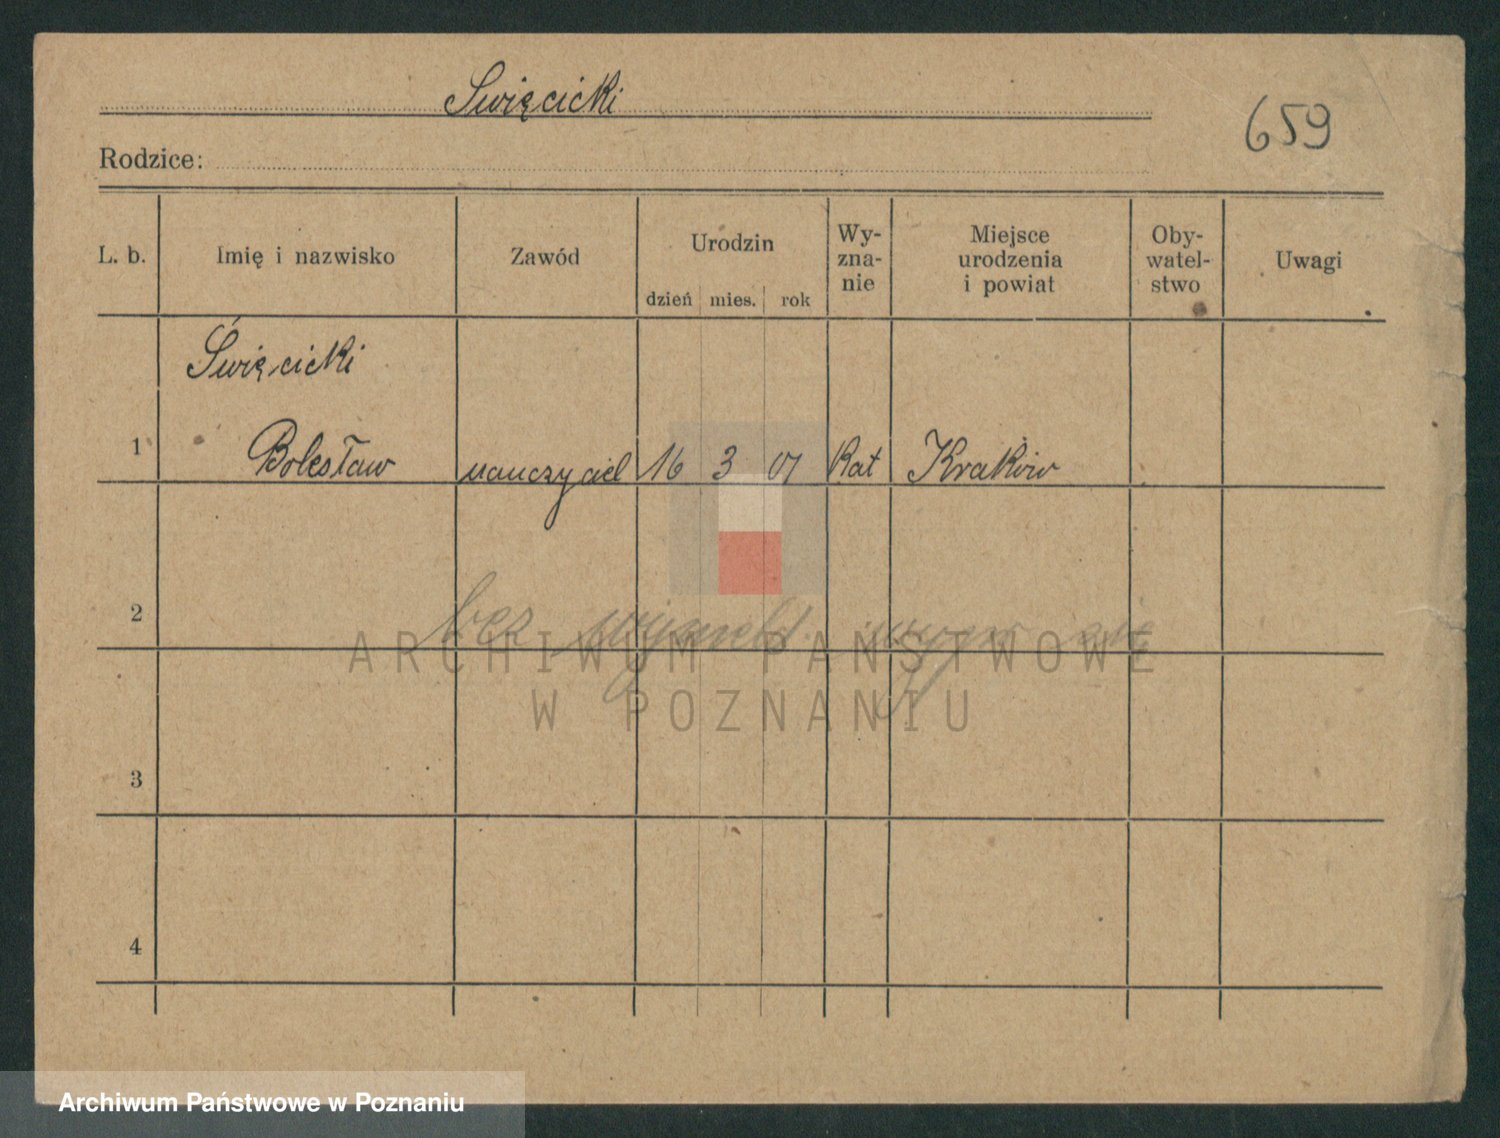 Święcicki
659
Rodzice:
L. b. Imię i nazwisko Zawód Urodzin dzień mies. rok Wy-zna-nie Miejsce urodzenia i powiat Oby-watel-stwo Uwagi
Święcicki
1 Bolesław nauczyciel 16 3 07 Kat Kraków
2
bez
ARCHIWUM PAŃSTWOWE
W POZNANIU
3
4
Archiwum Państwowe w Poznaniu